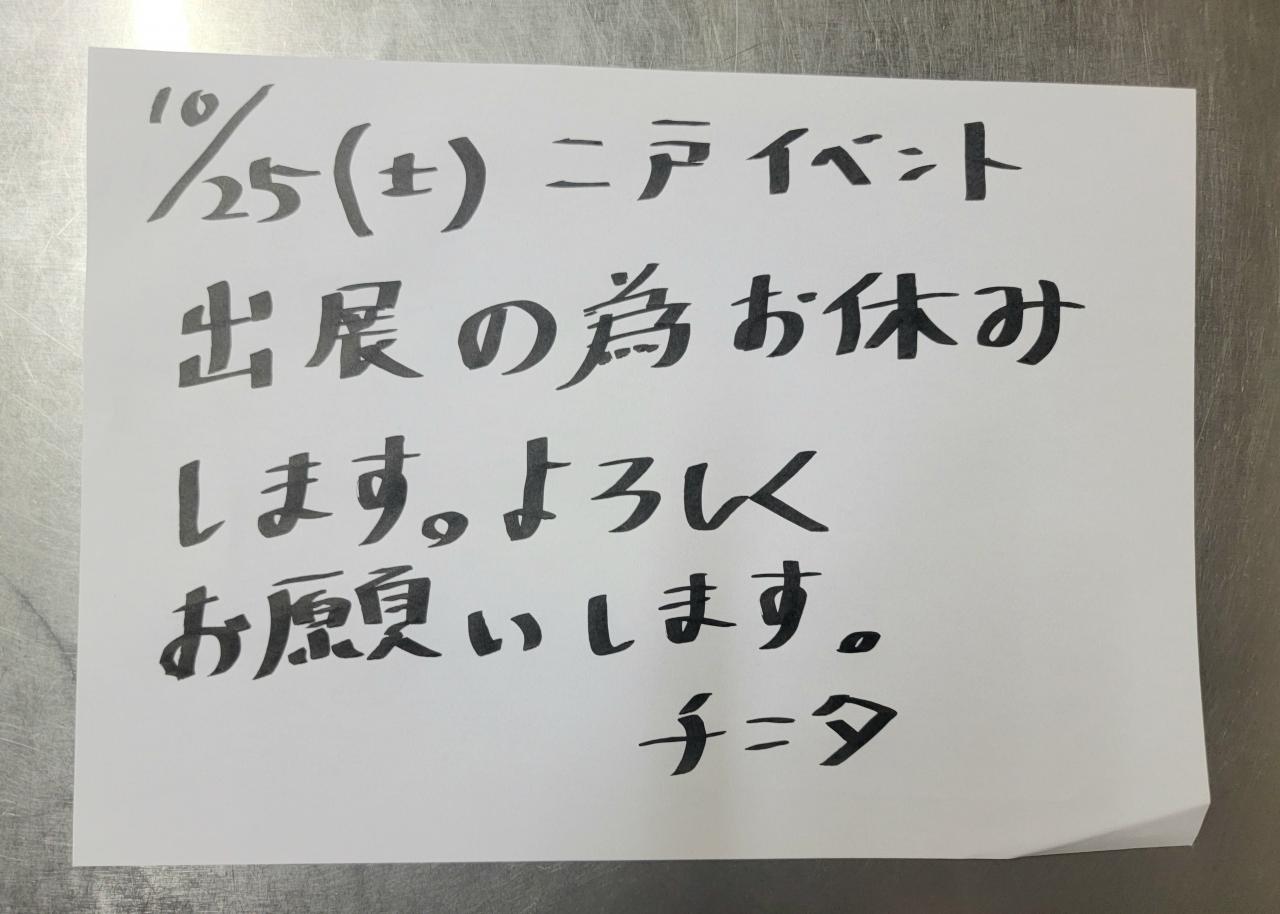 10/25(土) 二戸イベント
出展の為お休み
します。よろしく
お願いします。
チニタ